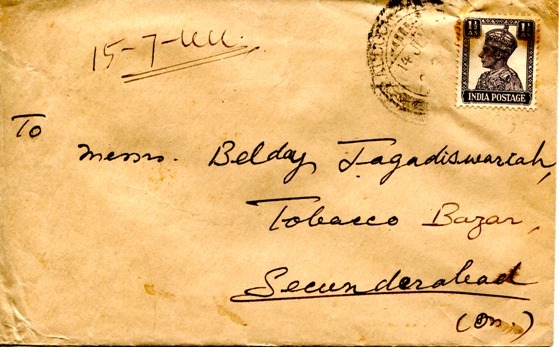 1½ 1½
AS AS
INDIA POSTAGE
15-7-44.
To
Messrs. Belday Jagadiswariah,
Tobacco Bazar,
Secunderabad
(Dn.)